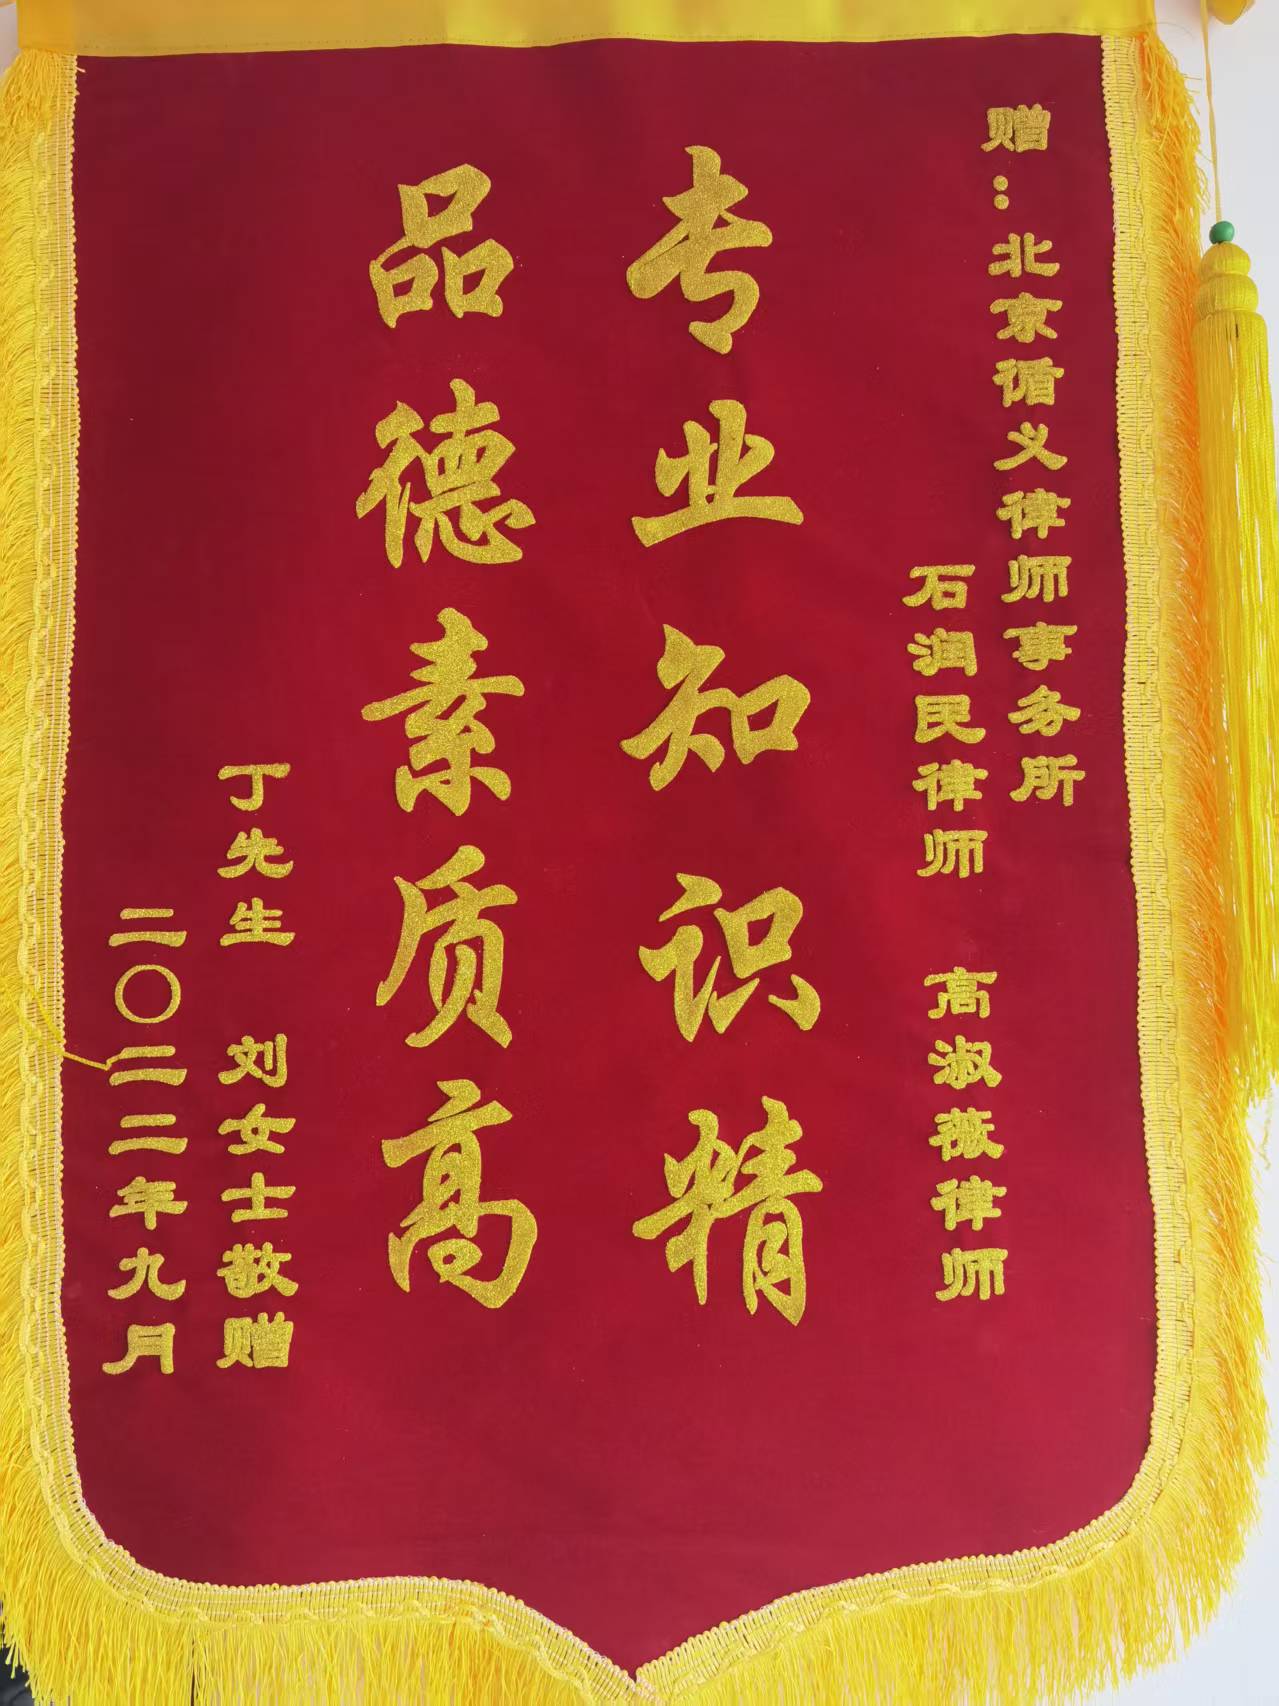 赠：北京循义律师事务所
石润民律师 高淑薇律师
专业知识精
品德素质高
丁先生 刘女士敬赠
二〇二二年九月